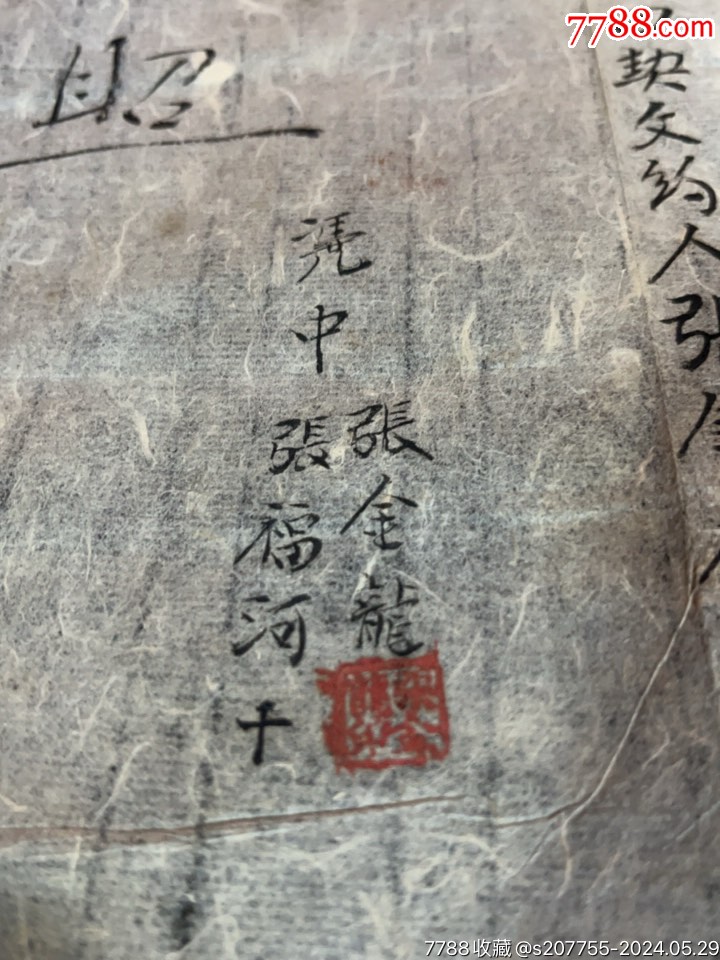 7788.com
契文約人張
昭
凴中
張金龍
張福河 十
7788收藏@s207755-2024.05.29